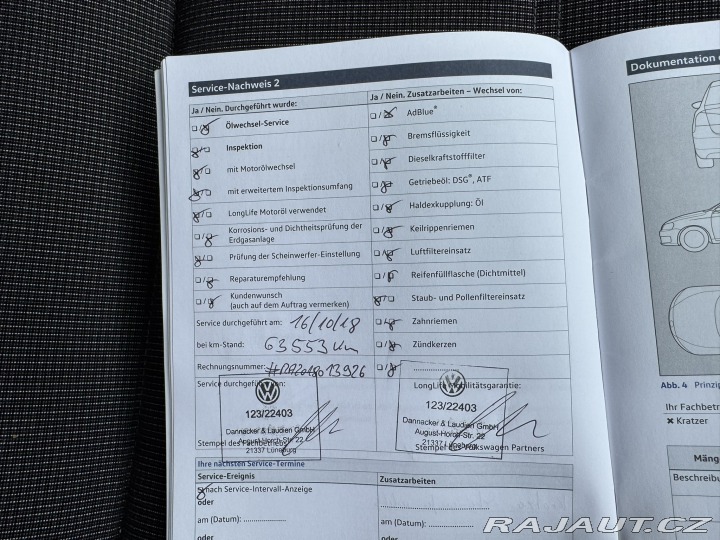 Service-Nachweis 2
Ja / Nein. Durchgeführt wurde:
Ölwechsel-Service
Inspektion
mit Motorölwechsel
mit erweitertem Inspektionsumfang
LongLife Motoröl verwendet
Korrosions- und Dichtheitsprüfung der
Erdgasanlage
Prüfung der Scheinwerfer-Einstellung
Reparaturempfehlung
Kundenwunsch
(auch auf dem Auftrag vermerken)
Service durchgeführt am: 16/10/18
bei km-Stand: 63553 km
Rechnungsnummer:
Service durchgeführt von:
123/22403
Dannacker & Laudien GmbH
August-Horch-Str. 22
21337 Lüneburg
Stempel des Fachbetriebs
Ja / Nein. Zusatzarbeiten – Wechsel von:
AdBlue®
Bremsflüssigkeit
Dieselkraftstofffilter
Getriebeöl: DSG®, ATF
Haldexkupplung: Öl
Keilrippenriemen
Luftfiltereinsatz
Reifenfüllflasche (Dichtmittel)
Staub- und Pollenfiltereinsatz
Zahnriemen
Zündkerzen
LongLife Mobilitätsgarantie:
123/22403
Dannacker & Laudien GmbH
August-Horch-Str. 22
21337 Lüneburg
Stempel des Volkswagen Partners
Ihre nächsten Service-Termine
Service-Ereignis
Zusatzarbeiten
nach Service-Intervall-Anzeige
oder
am (Datum):
oder
oder
am (Datum):
Dokumentation
Abb. 4 Prinzip
Ihr Fachbetri
✖ Kratzer
Mäng
Beschreibu
RAJAUT.CZ